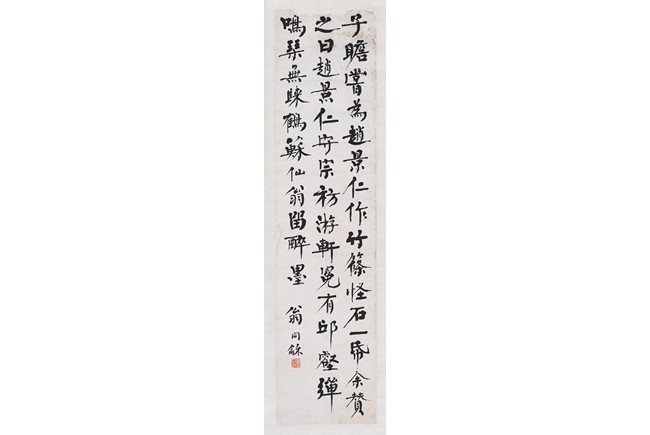 子瞻嘗為趙景仁作竹篠怪石一紙余贊
之曰趙景仁守宗祊游軒冕有邱壑彈
鳴琴無睞鶴蘇仙翁留醉墨
翁同龢